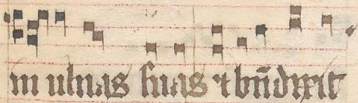 in ulnas suas ⁊ bn̄dixit